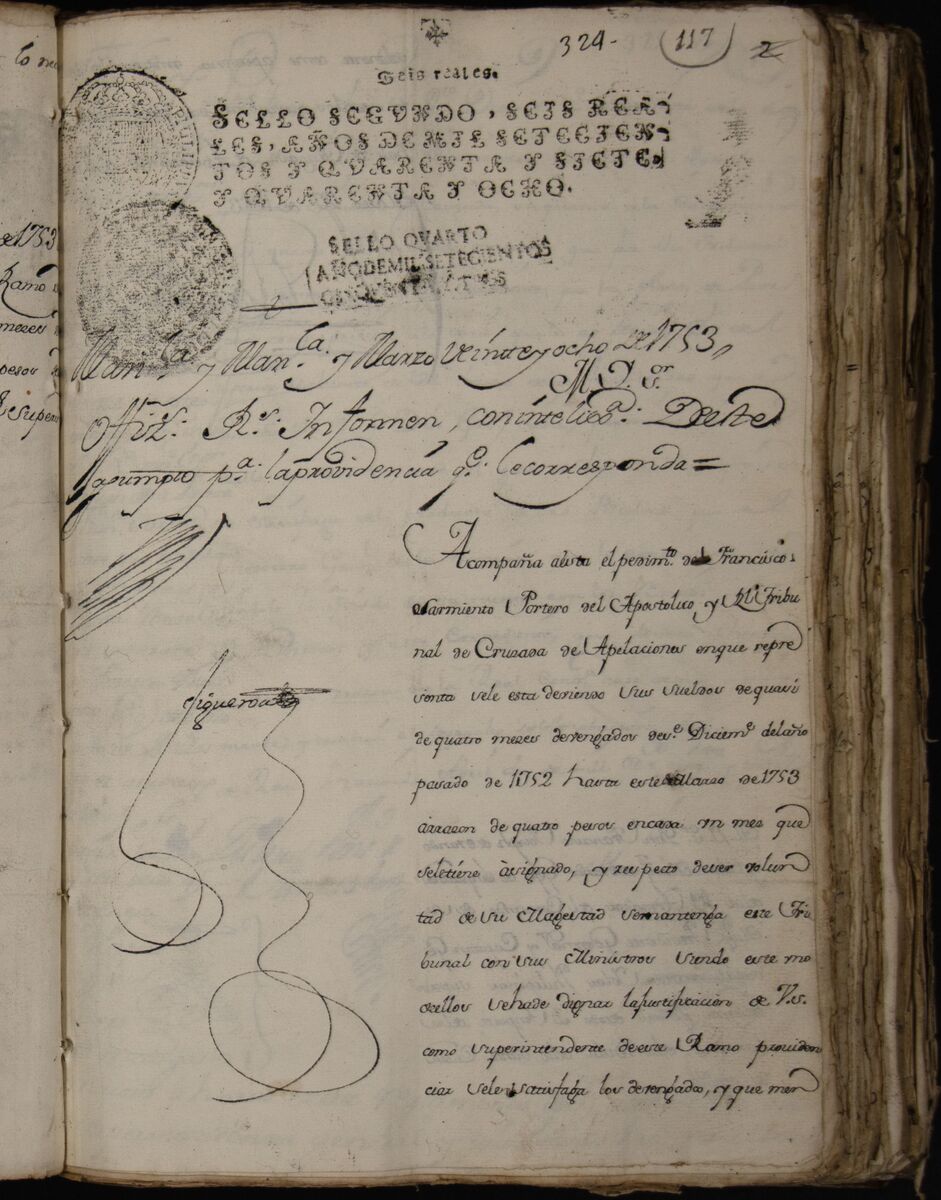 lo nec
de 1753
Ramo
meses
pesos
324-
117
2
Seis reales.
SELLO SEGVNDO, SEIS REA-
LES, AÑOS DE MIL SETECIEN-
TOS Y QVARENTA Y SIETE,
Y QVARENTA Y OCHO.
SELLO QVARTO
AÑO DE MIL SETECIENTOS
CINQVENTA Y TRES
Man.la y Marzo Veinte y ocho de 1753,,
M. Y. S.or
Offiz.s R.s Informen, con intelig.a De este
asumpto p.a la providencia q.e le corresponda =
Acompaña a esta el pedim.to de Francisco
Sarmiento Portero del Apostolico, y R.l Tribu
nal de Cruzada de Apelaciones en que repre
senta se le esta deviendo sus sueldos de quasi
de quatro mezes devengados des.e Diciem.e del año
pasado de 1752 hasta este Marzo de 1753
a razon de quatro pesos en cada un mes que
se le tiene asignado, y respecto de ser volun
tad de Su Magestad se mantenga este Tri
bunal con sus Ministros siendo este uno
de ellos se ha de dignar la justificacion de V.S.
como superintendente de este Ramo providen
ciar se le satisfaga los devengados, y que men
Figueroa